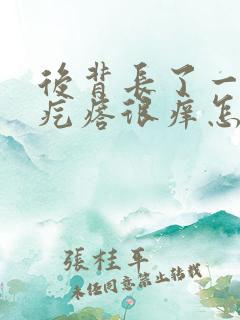 後背長了一
疙瘩很癢怎
張桂平
未任同意禁止转载